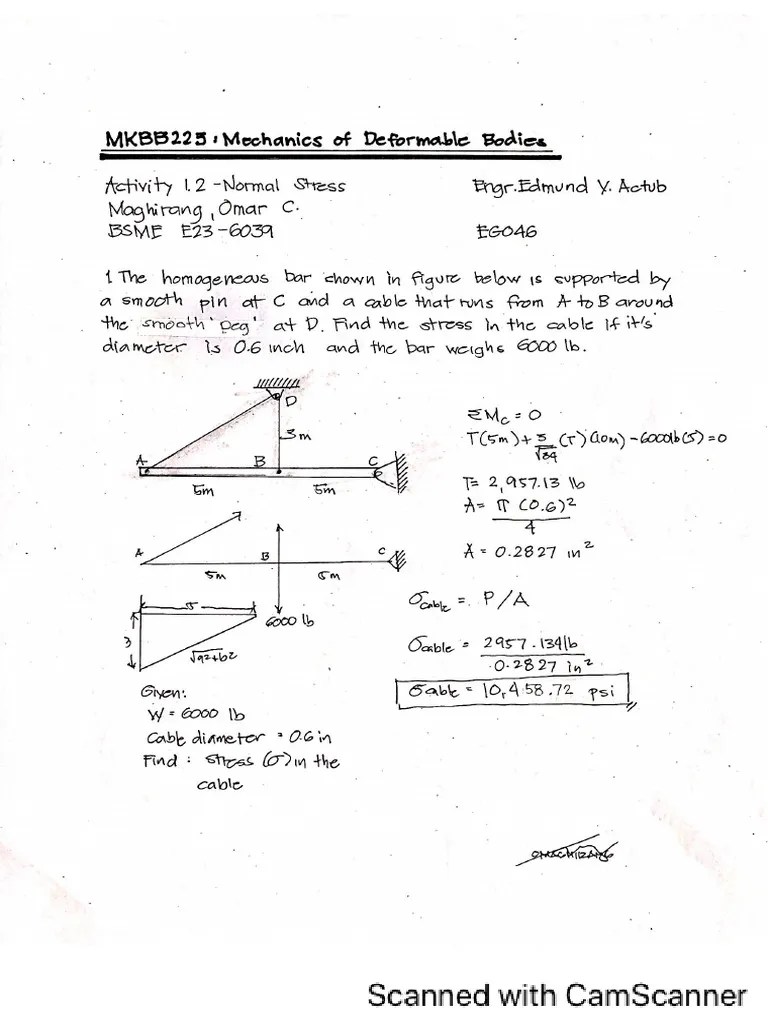 MKBB225: Mechanics of Deformable Bodies
Activity 1.2 - Normal Stress
Engr. Edmund Y. Actub
Maghirang, Omar C.
BSME E23-6039
EG046
1 The homogeneous bar shown in figure below is supported by
a smooth pin at C and a cable that runs from A to B around
the smooth 'peg' at D. Find the stress in the cable if it's
diameter is 0.6 inch and the bar weighs 6000 lb.
D
3m
A B C
5m 5m
ΣMc = 0
T(5m) + 3/√34 (T)(10m) - 6000lb(5) = 0
T = 2,957.13 lb
A = π (0.6)²
4
A = 0.2827 in²
A B C
5m 5m
6000 lb
5
3
√a2+b2
σcable = P/A
σcable = 2957.134lb
0.2827 in²
σcable = 10,458.72 psi
Given:
W = 6000 lb
Cable diameter = 0.6 in
Find : stress (σ) in the
cable
Scanned with CamScanner